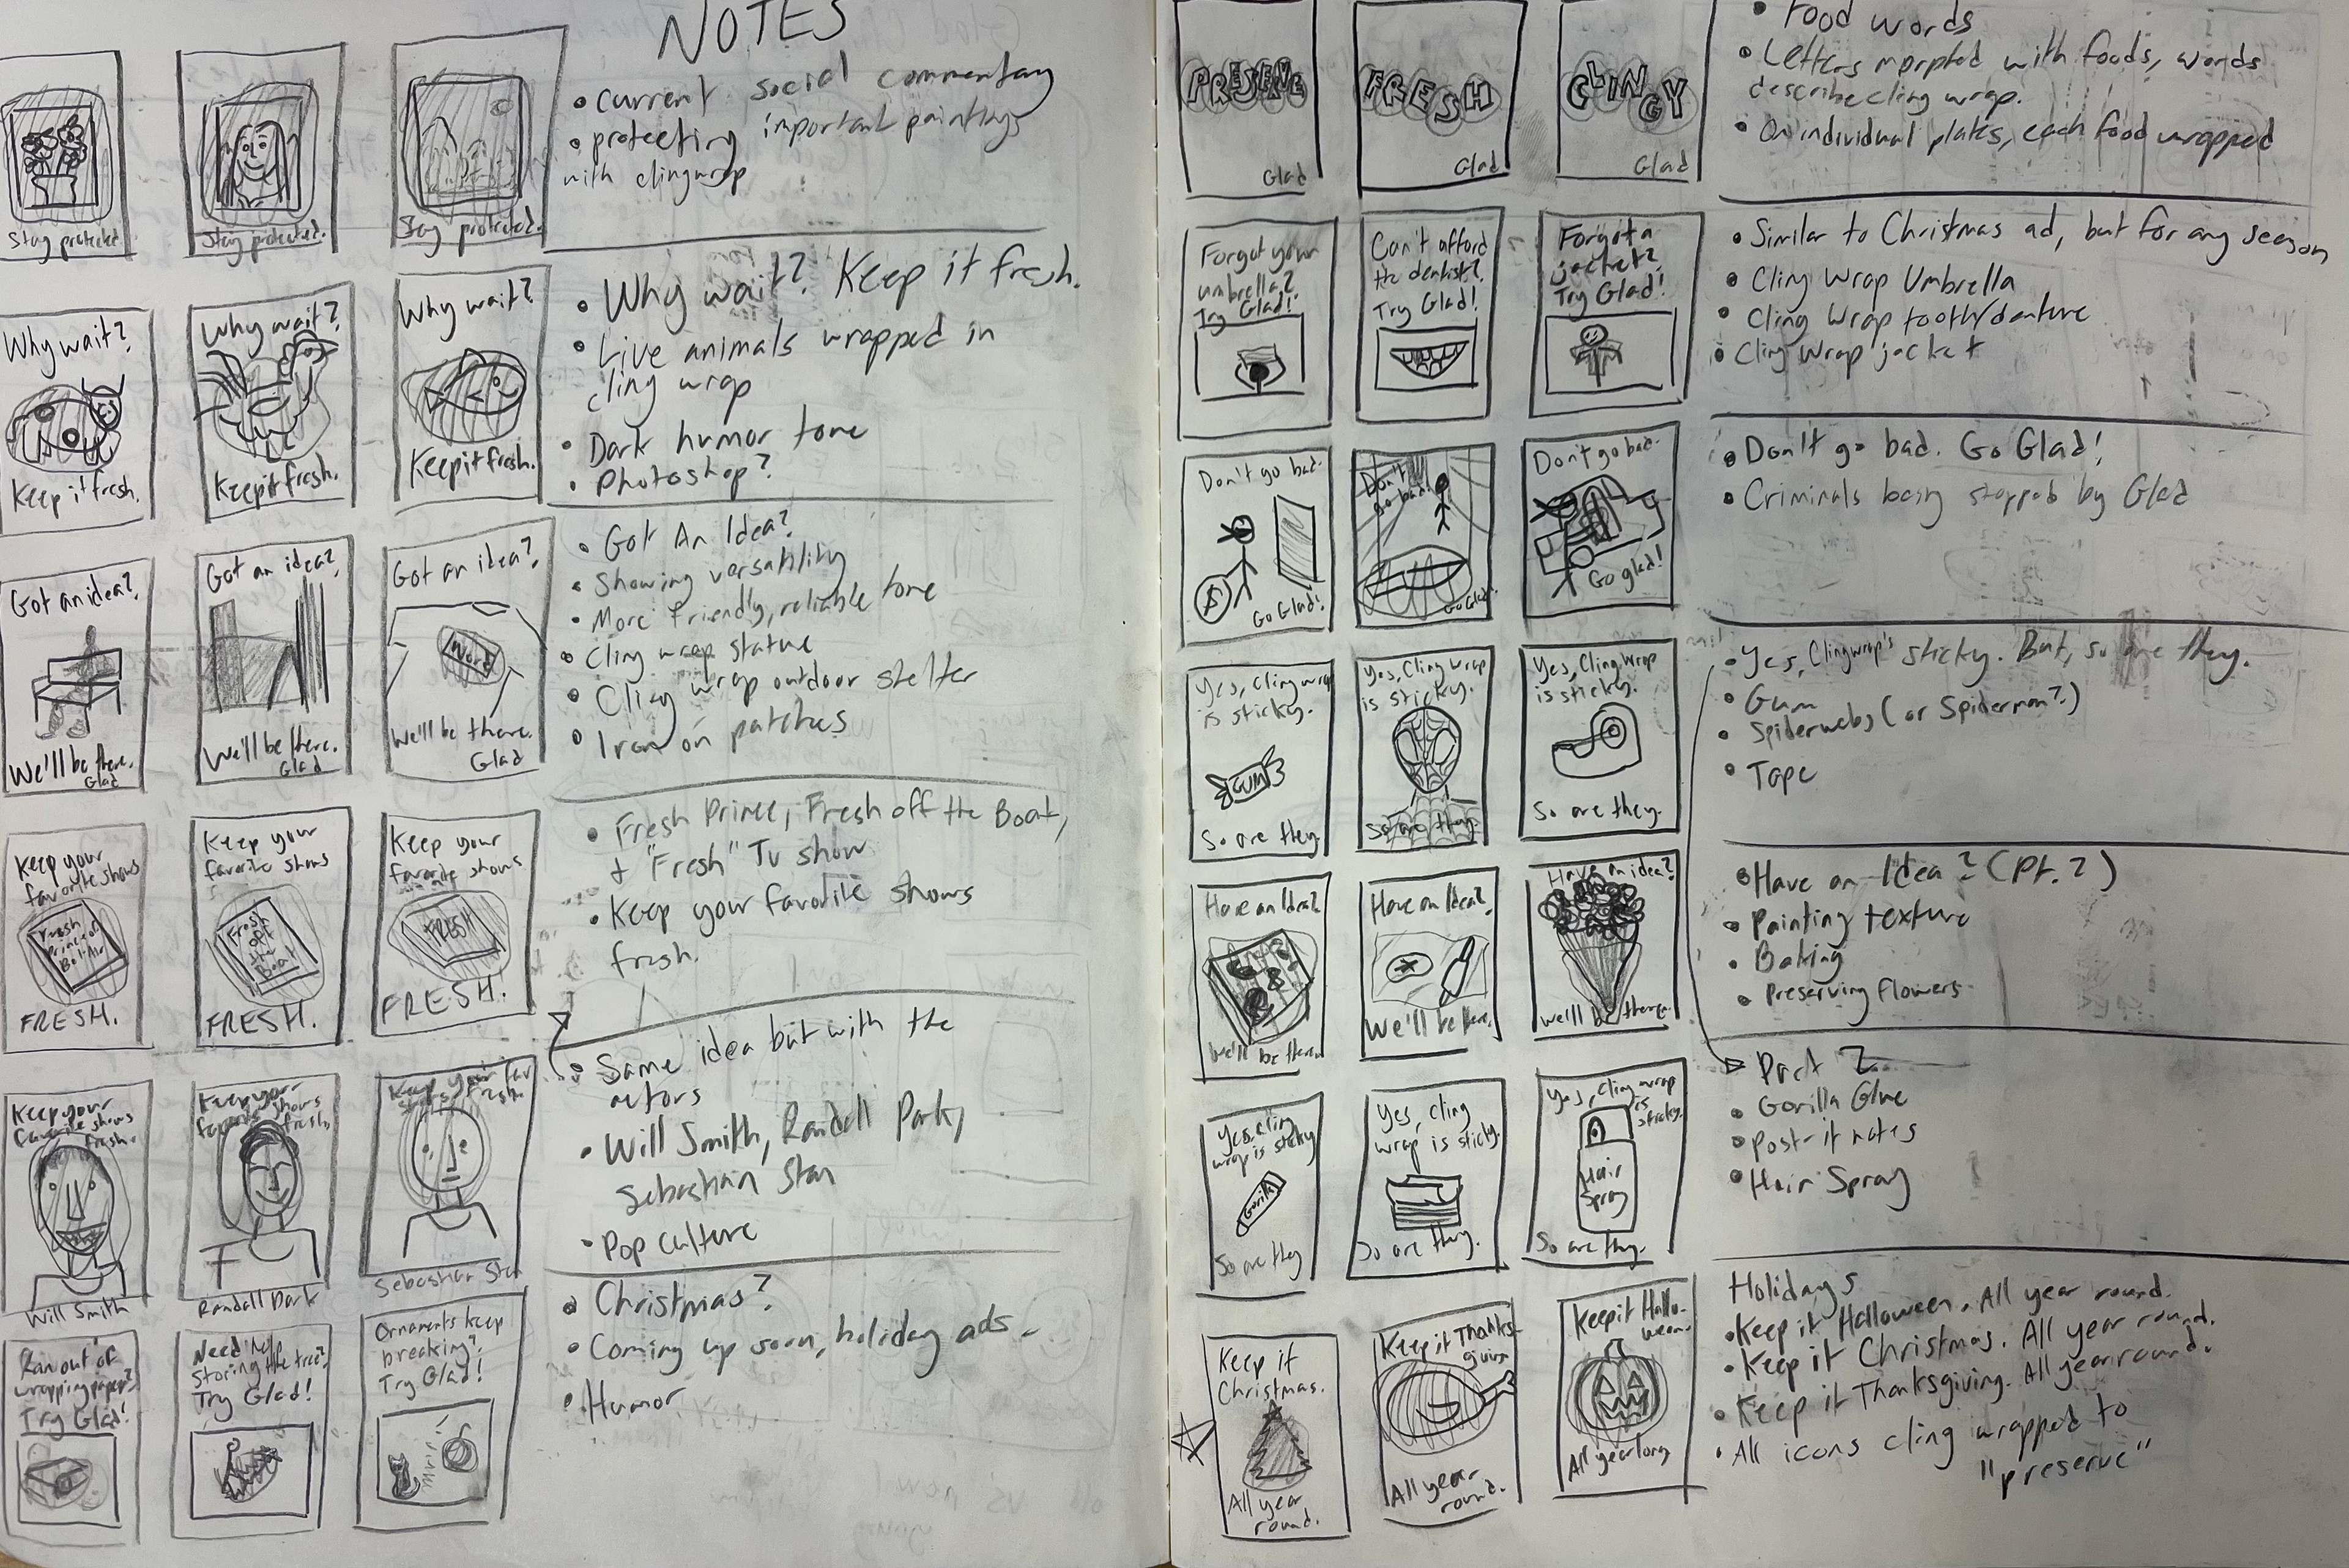 NOTES
Stay protected.
Stay protected.
Stay protected.
• Current social commentary
• protecting important paintings
with clingwrap
Why wait?
Keep it fresh.
Why wait?
Keep it fresh.
Why wait?
Keep it fresh.
• Why wait? Keep it fresh.
• Live animals wrapped in
cling wrap
• Dark humor tone
• Photoshop?
Got an idea?
We'll be there.
Glad
Got an idea?
We'll be there.
Glad
Got an idea?
Word
We'll be there.
Glad
• Got An Idea?
• Showing versatility
• More friendly, reliable tone
• Cling wrap statue
• Cling wrap outdoor shelter
• Iron on patches
Keep your
favorite shows
Fresh
Prince of
Bel-Air
FRESH.
Keep your
favorite shows
Fresh
off
the
Boat
FRESH.
Keep your
favorite shows
FRESH
FRESH.
• Fresh Prince, Fresh off the Boat,
+ "Fresh" Tv show
• Keep your favorite shows
fresh.
Keep your
favorite shows
fresh.
Will Smith
Keep your
favorite shows
fresh.
Randall Park
Keep your fav
fresh
Sebastian Stan
• Same idea but with the
actors
• Will Smith, Randall Park,
Sebastian Stan
• Pop culture
Ran out of
wrapping paper?
Try Glad!
Need help
storing the tree?
Try Glad!
Ornaments keep
breaking?
Try Glad!
• Christmas?
• Coming up soon, holiday ads.
• Humor
PRESERVE
Glad
FRESH
Glad
CLINGY
Glad
• Food words
• Letters morphed with foods, words
describe cling wrap.
• On individual plates, each food wrapped
Forgot your
umbrella?
Try Glad!
Can't afford
the dentist?
Try Glad!
Forgot a
jacket?
Try Glad!
• Similar to Christmas ad, but for any season
• Cling Wrap Umbrella
• Cling Wrap tooth/denture
• Cling Wrap jacket
Don't go bad.
$
Go Glad!
Don't
go bad.
Go Glad!
Don't go bad.
Go glad!
• Don't go bad. Go Glad!
• Criminals being stopped by Glad
Yes, Cling wrap
is sticky.
GUM
So are they.
Yes, Cling wrap
is sticky.
So are they.
Yes, Cling wrap
is sticky.
So are they.
• Yes, Clingwrap's sticky. But, so are they.
• Gum
• Spiderwebs (or Spiderman?)
• Tape
Have an Idea?
We'll be there.
Have an Idea?
We'll be there.
Have an idea?
We'll be there.
• Have an Idea? (Pt. 2)
• Painting texture
• Baking
• Preserving flowers
Yes, cling
wrap is sticky
Gorilla
So are they
Yes, cling
wrap is sticky.
So are they.
Yes, cling wrap
is
sticky.
Hair
Spray
So are they.
Part 2
• Gorilla Glue
• Post-it notes
• Hair Spray
Keep it
Christmas.
All year
round.
Keep it Thanks-
giving
All year
round.
Keep it Hallo-
ween.
All year long
Holidays
• Keep it Halloween. All year round.
• Keep it Christmas. All year round.
• Keep it Thanksgiving. All year round.
• All icons cling wrapped to
"preserve"